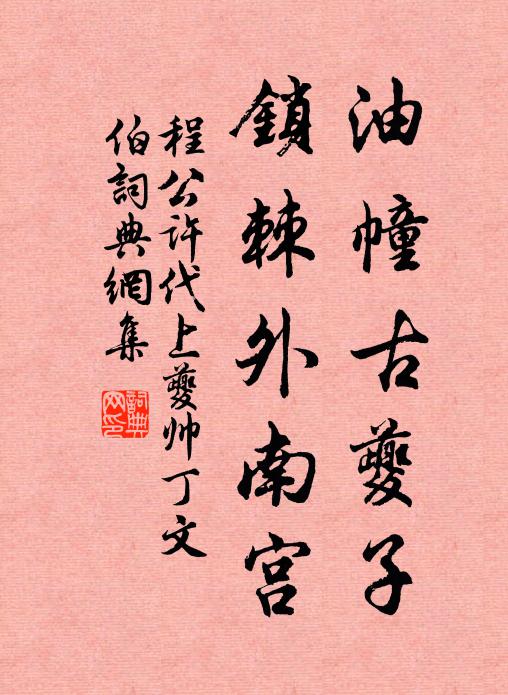 油幢古夔子
鎖棘外南宫
程公许代上夔帅丁文
伯詞典網集
詞典
网印